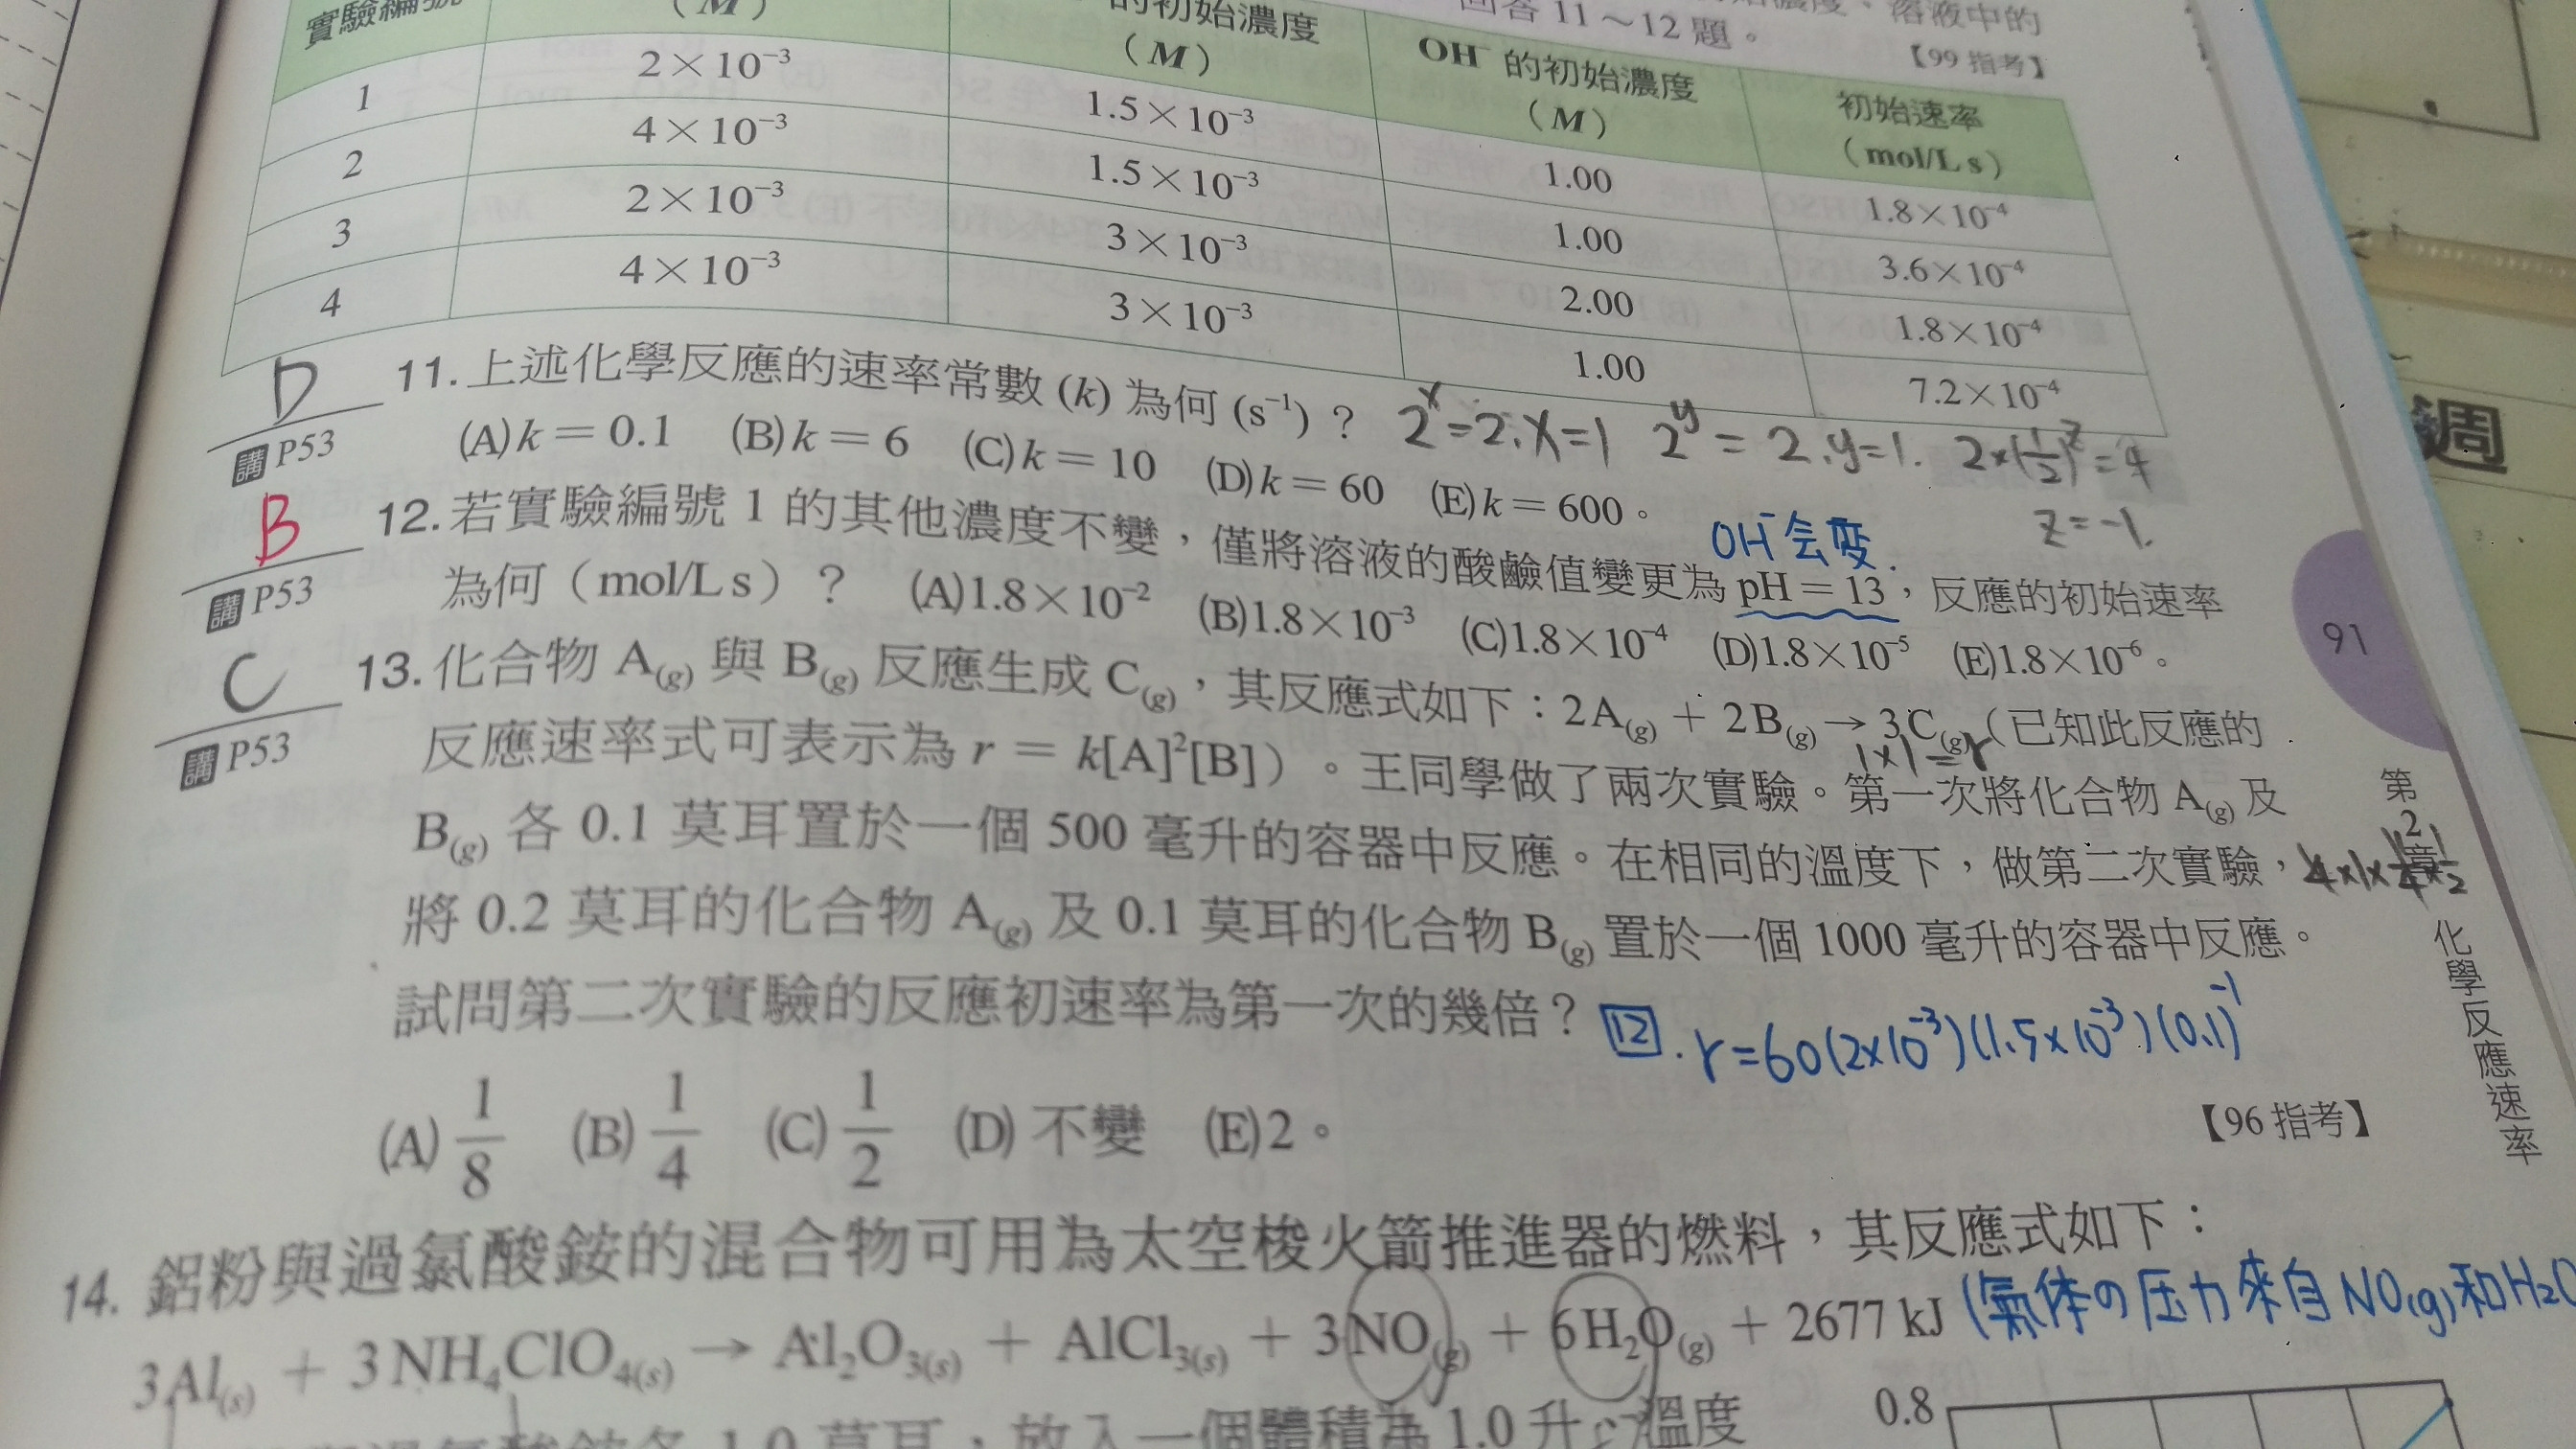 回答 11～12 題。
溶液中的
【99 指考】
實驗編號
(M)
的初始濃度
(M)
OH⁻ 的初始濃度
(M)
初始速率
(mol/L s)
1 2×10⁻³ 1.5×10⁻³ 1.00 1.8×10⁻⁴
2 4×10⁻³ 1.5×10⁻³ 1.00 3.6×10⁻⁴
3 2×10⁻³ 3×10⁻³ 2.00 1.8×10⁻⁴
4 4×10⁻³ 3×10⁻³ 1.00 7.2×10⁻⁴
D
講 P53
11. 上述化學反應的速率常數 (k) 為何 (s⁻¹)?
2ˣ=2.x=1 2ʸ=2.y=1. 2×(1/2)ᶻ=4
z=-1.
(A)k=0.1 (B)k=6 (C)k=10 (D)k=60 (E)k=600。
B
講 P53
OH⁻会变.
12. 若實驗編號 1 的其他濃度不變,僅將溶液的酸鹼值變更為 pH=13,反應的初始速率
為何(mol/L s)? (A)1.8×10⁻² (B)1.8×10⁻³ (C)1.8×10⁻⁴ (D)1.8×10⁻⁵ (E)1.8×10⁻⁶。
C
講 P53
13. 化合物 A(g) 與 B(g) 反應生成 C(g),其反應式如下:2A(g) + 2B(g) → 3C(g)(已知此反應的
1×1=r
反應速率式可表示為 r = k[A]²[B])。王同學做了兩次實驗。第一次將化合物 A(g) 及
B(g) 各 0.1 莫耳置於一個 500 毫升的容器中反應。在相同的溫度下,做第二次實驗,
4×1×1/4×1/2
將 0.2 莫耳的化合物 A(g) 及 0.1 莫耳的化合物 B(g) 置於一個 1000 毫升的容器中反應。
試問第二次實驗的反應初速率為第一次的幾倍?
12. r=60(2×10⁻³)(1.5×10⁻³)(0.1)⁻¹
(A) 1/8 (B) 1/4 (C) 1/2 (D) 不變 (E)2。
【96 指考】
14. 鋁粉與過氯酸銨的混合物可用為太空梭火箭推進器的燃料,其反應式如下:
3Al(s) + 3NH₄ClO₄(s) → Al₂O₃(s) + AlCl₃(s) + 3NO(g) + 6H₂O(g) + 2677 kJ
(氣体の压力來自NO(g)和H₂O
1.0 莫耳,放入一個體積為 1.0 升
溫度
0.8
91
第2章 化學反應速率
週